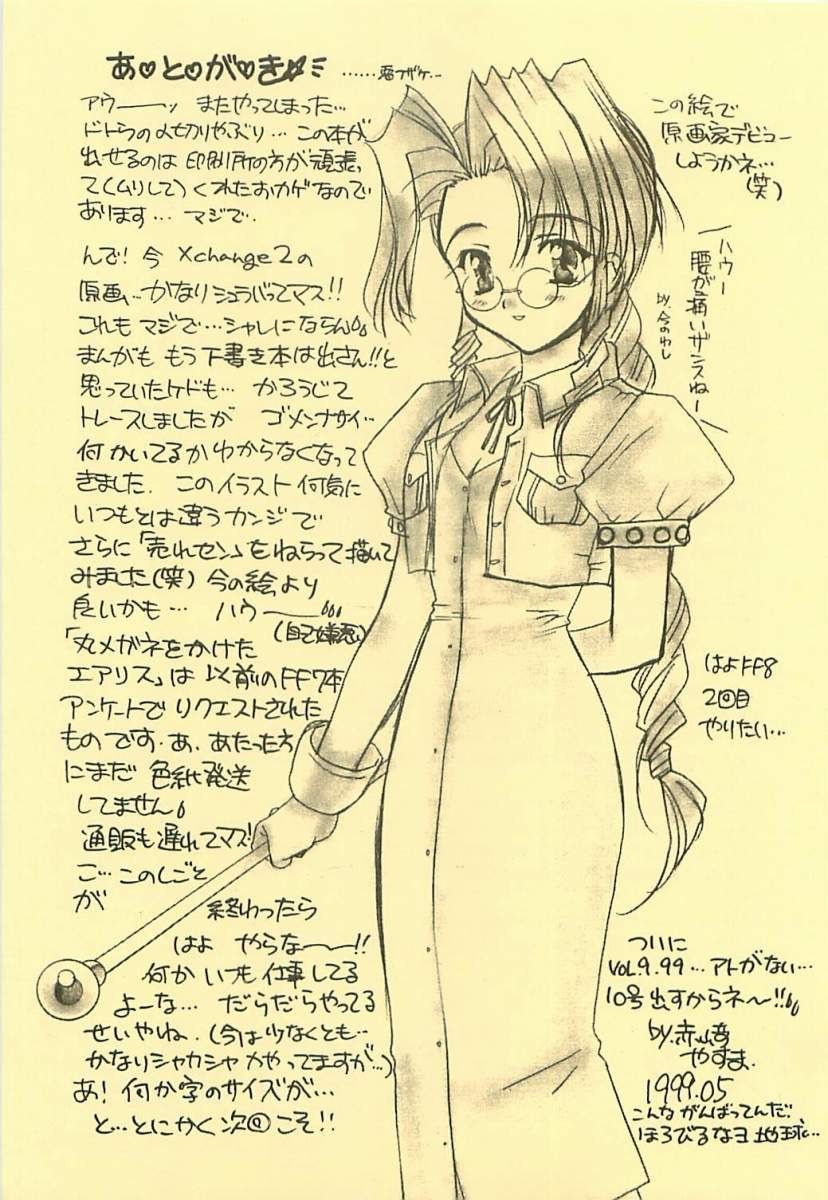 あ♡と♡が♡き☆
アウ——ッ またやってしまった…
ドトウの〆切りやぶり…この本が
出せるのは 印刷所の方が頑張っ
て(ムリして)くれたおカゲなので
あります… マジで.
んで!今 Xchange2の
原画、…かなりシュラバってマス!!
これも マジで…シャレにならん
まんがも もう下書き本は出さん!!と
思っていたケドも… かろうじて
トレースしましたが ゴメンナサイ…
何かいてるかわからなくなって
きました. このイラスト何気に
いつもとは違うカンジで
さらに「売れセン」をねらって描いて
みました(笑) 今の絵より
良いかも… ハウ——
(自己嫌悪)
「丸メガネをかけた
エアリス」は以前のFF7本
アンケートでリクエストされた
ものです.あ、あたった方
にまだ 色紙発送
してません
通販も遅れてマス!
ご…このしごと
が
終わったら
はよ やらな〜〜!!
何かいつも仕事してる
よーな… だらだらやってる
せいやね.(今は少なくとも…
かなりシャカシャカやってますが…)
あ!何か字のサイズが…
と…とにかく次回こそ!!
この絵で
原画家デビュー
しようかネ…
(笑)
ハウー
腰が痛いザンスねー
by.今のわし
はよFF8
2回目
やりたい…
ついに
VOL.9.99…アトがない…
10号出すからネ〜!!
by.赤
やすま.
1999.05
こんながんばってんだ.
ほろびるなヨ 地球…